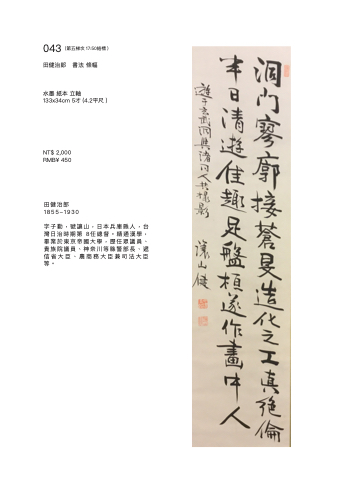 043 (第五梯次 17:50結標)
田健治郎 書法 條幅
水墨 紙本 立軸
133x34cm 5才 (4.2平尺)
NT$ 2,000
RMB¥ 450
田健治郎
1855-1930
字子勤，號讓山，日本兵庫縣人，台
灣日治時期第 8任總督。精通漢學，
畢業於東京帝國大學，歷任眾議員、
貴族院議員、神奈川等縣警部長、遞
信省大臣、農商務大臣兼司法大臣
等。
洞門寥廓接蒼旻造化之工真絕倫
半日清遊佳趣足盤桓遂作畫中人
遊于玄武洞與諸同人共撮影
讓山健